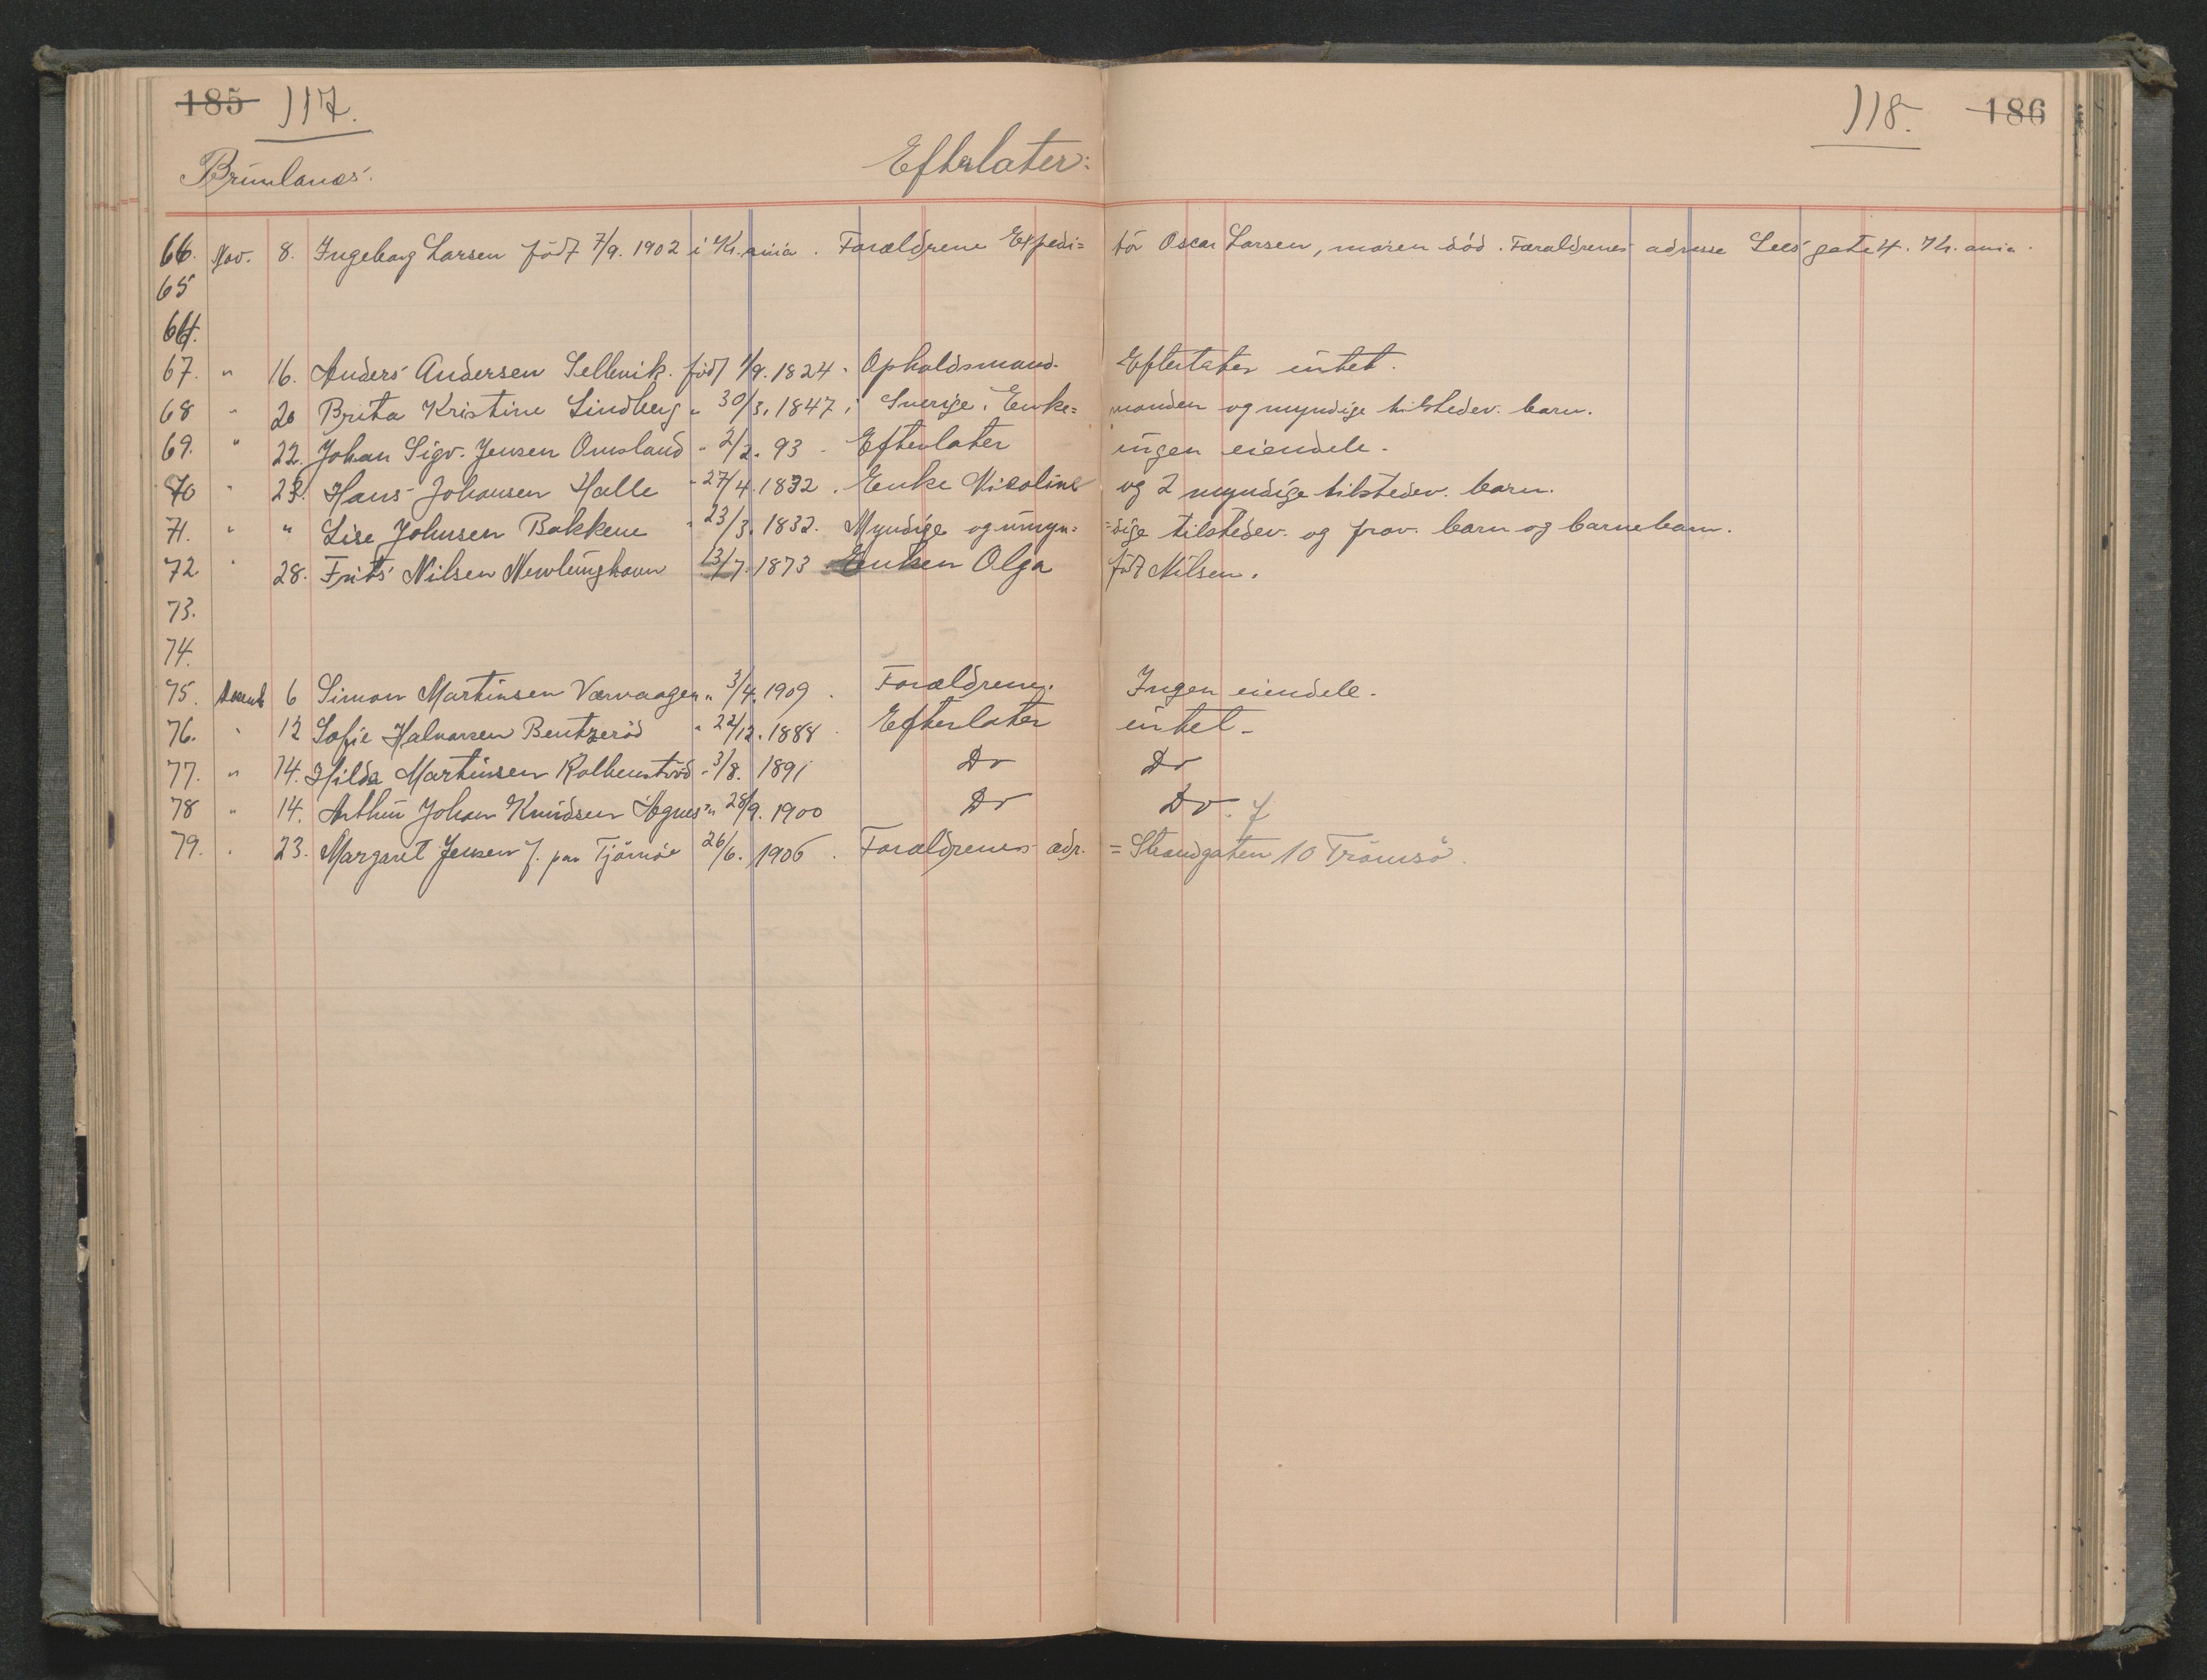 185 117.
118. 186
Brunlanes.
Efterlater:
66. Nov. 8. Ingeborg Larsen född 7/9. 1902 i Kr.ania. Forældrene Expedi= tör Oscar Larsen, moren död. Forældrenes adresse gate 4. Kr.ania.
65
64.
67. " 16. Anders Andersen Sellevik. född 1/9. 1824. Opholdsmand. Efterlater intet.
68 " 20 Brita Kristine Lindberg " 30/3. 1847 i Sverige. Enke= manden og myndige tilstedev. barn.
69. " 22. Johan Sigv. Jensen Omsland " 2/2. 93 - Efterlater ingen eiendele.
70 " 23. Hans Johansen Halle " 27/4. 1832. Enke Nicoline og 2 myndige tilstedev. barn.
71. " " Lise Johnsen Bakkene " 23/3. 1832. Myndige og umyn= =dige tilstedev. og frav. barn og barnebarn.
72 " 28. Frits Nilsen Nevlunghavn 13/7. 1873 Enken Olga föd Nilsen.
73.
74.
75. Decemb 6 Simon Martinsen Varvaagen " 3/4. 1909. Forældrene. Ingen eiendele.
76. " 12 Sofie Halvorsen Bentzeröd " 22/12. 1888. Efterlater intet-
77. " 14. Hilda Martinsen " 3/8. 1891 Do Do
78 " 14. Arthur Johan Knudsen Agnes " 28/9. 1900 Do Do.
79. " 23. Margaret Jensen f. paa Tjömöe 26/6. 1906. Forældrenes adr. = Strandgaten 10 Trömsö.